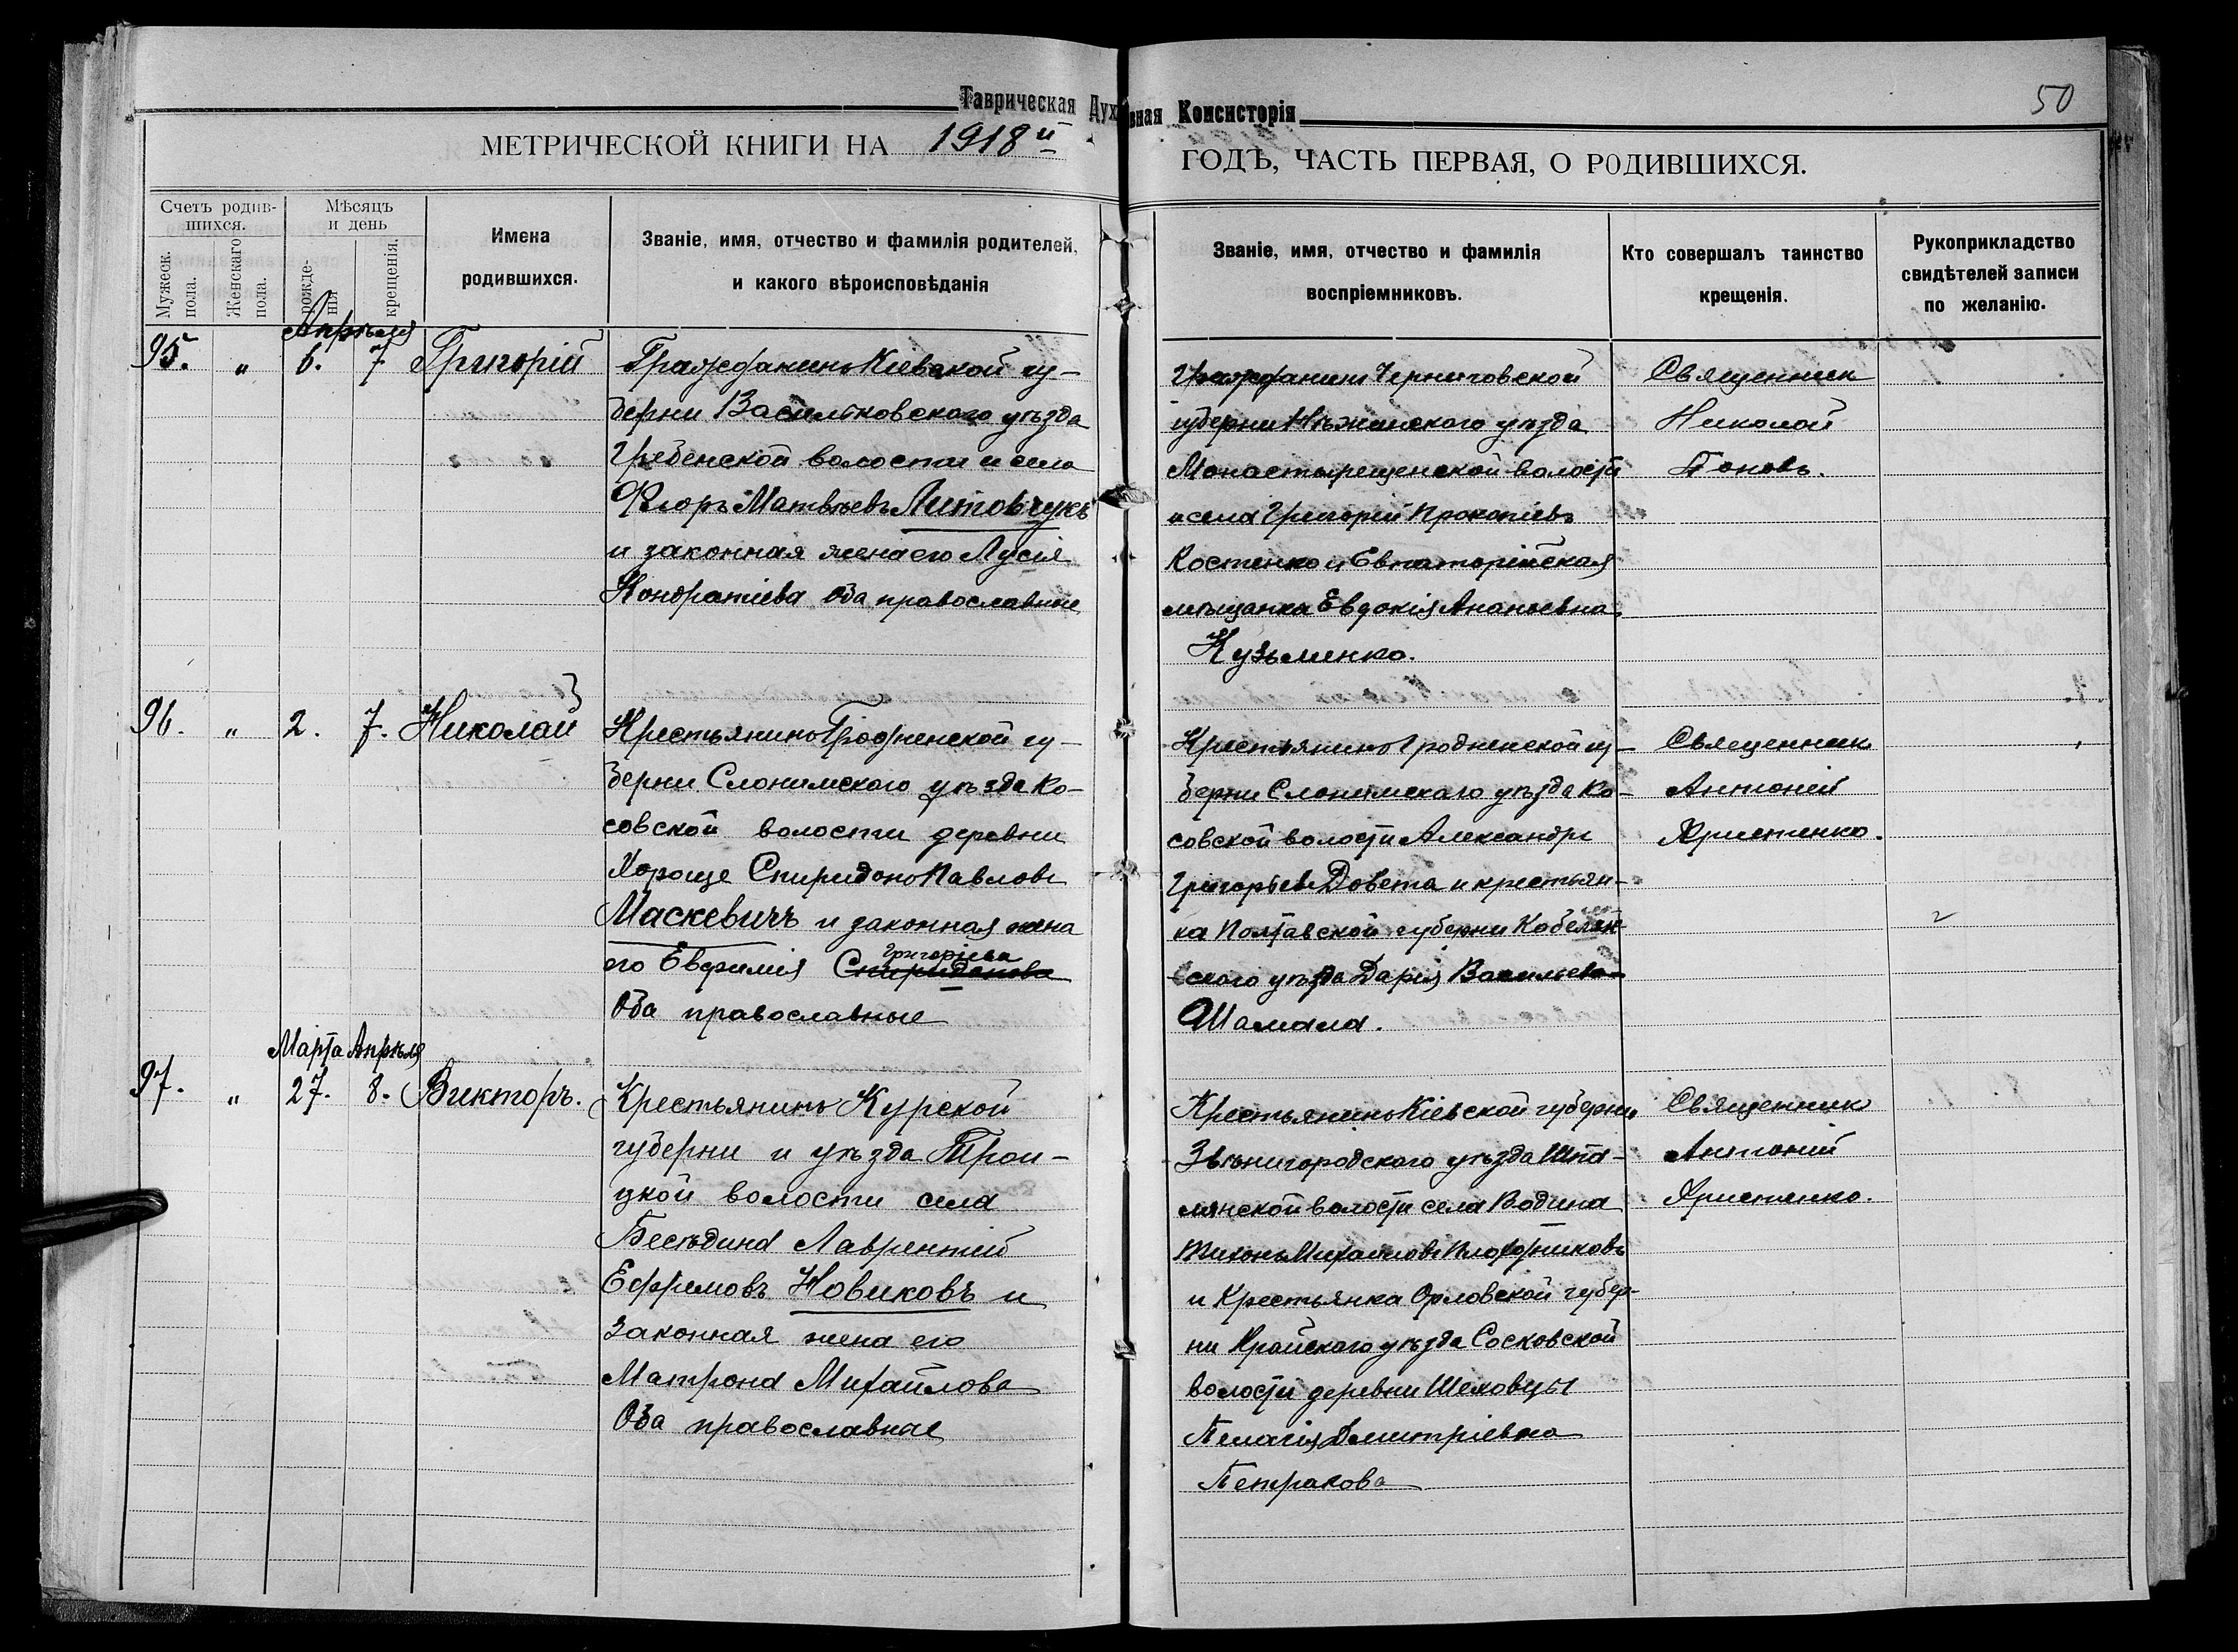 Таврическая Духовная Консисторія
50
МЕТРИЧЕСКОЙ КНИГИ НА 1918й ГОДЪ, ЧАСТЬ ПЕРВАЯ, О РОДИВШИХСЯ.
Счетъ родив-
шихся.
Мужеск.
пола.
Женскаго
пола.
Мѣсяцъ
и день
рожде-
нія
крещенія.
Имена
родившихся.
Званіе, имя, отчество и фамилія родителей,
и какого вѣроисповѣданія
Званіе, имя, отчество и фамилія
воспріемниковъ.
Кто совершалъ таинство
крещенія.
Рукоприкладство
свидѣтелей записи
по желанію.
Апрѣля
95. „ 6. 7 Григорій
Гражданинъ Кіевской гу-
берни Васильковскаго уѣзда
Гребенской волости и села
Матвѣевъ Литовчукъ
и законная жена его Лусія
Кондратіева Оба православные
Гражданинъ Черниговской
губерни Нѣжинскаго уѣзда
Монастырещенской волости
и села Григорій Прокопіевъ
Костенко и Евпаторійская
мѣщанка Евдокія Ананьевна
Кузьменко.
Священник
Николай
Поповъ.
96. „ 2. 7. Николай
Крестьянинъ Гродненской гу-
берни Слонимскаго уѣзда Ко-
совской волости деревни
Хороще Спиридонъ Павловъ
Маскевичъ и законная жена
его Евфимія Спиридонова Григоріева
Оба православные
Крестьянинъ Гродненской гу-
берни Слонимскаго уѣзда Ко-
совской волости Александръ
Григорьевъ Довета и крестьян-
ка Полтавской губерни Кобеляк-
скаго уѣзда Дарія Васильева
Шамала.
Священник
Антоній
Христенко.
Марта Апрѣля
97. „ 27. 8. Викторъ.
Крестьянинъ Курской
губерни и уѣзда Трои-
цкой волости села
Бесѣдина Лаврентій
Ефремовъ Новиковъ и
Законная жена его
Матрона Михайлова
Оба православные
Крестьянинъ Кіевской губерни
Звѣнигородскаго уѣзда Шпо-
лянской волости села Водина
Тихонъ Михайловъ
и Крестьянка Орловской губер-
ни уѣзда Сосковской
волости деревни Шеховцы
Пелагія Дмитріевна
Петракова
Священник
Антоній
Христенко.